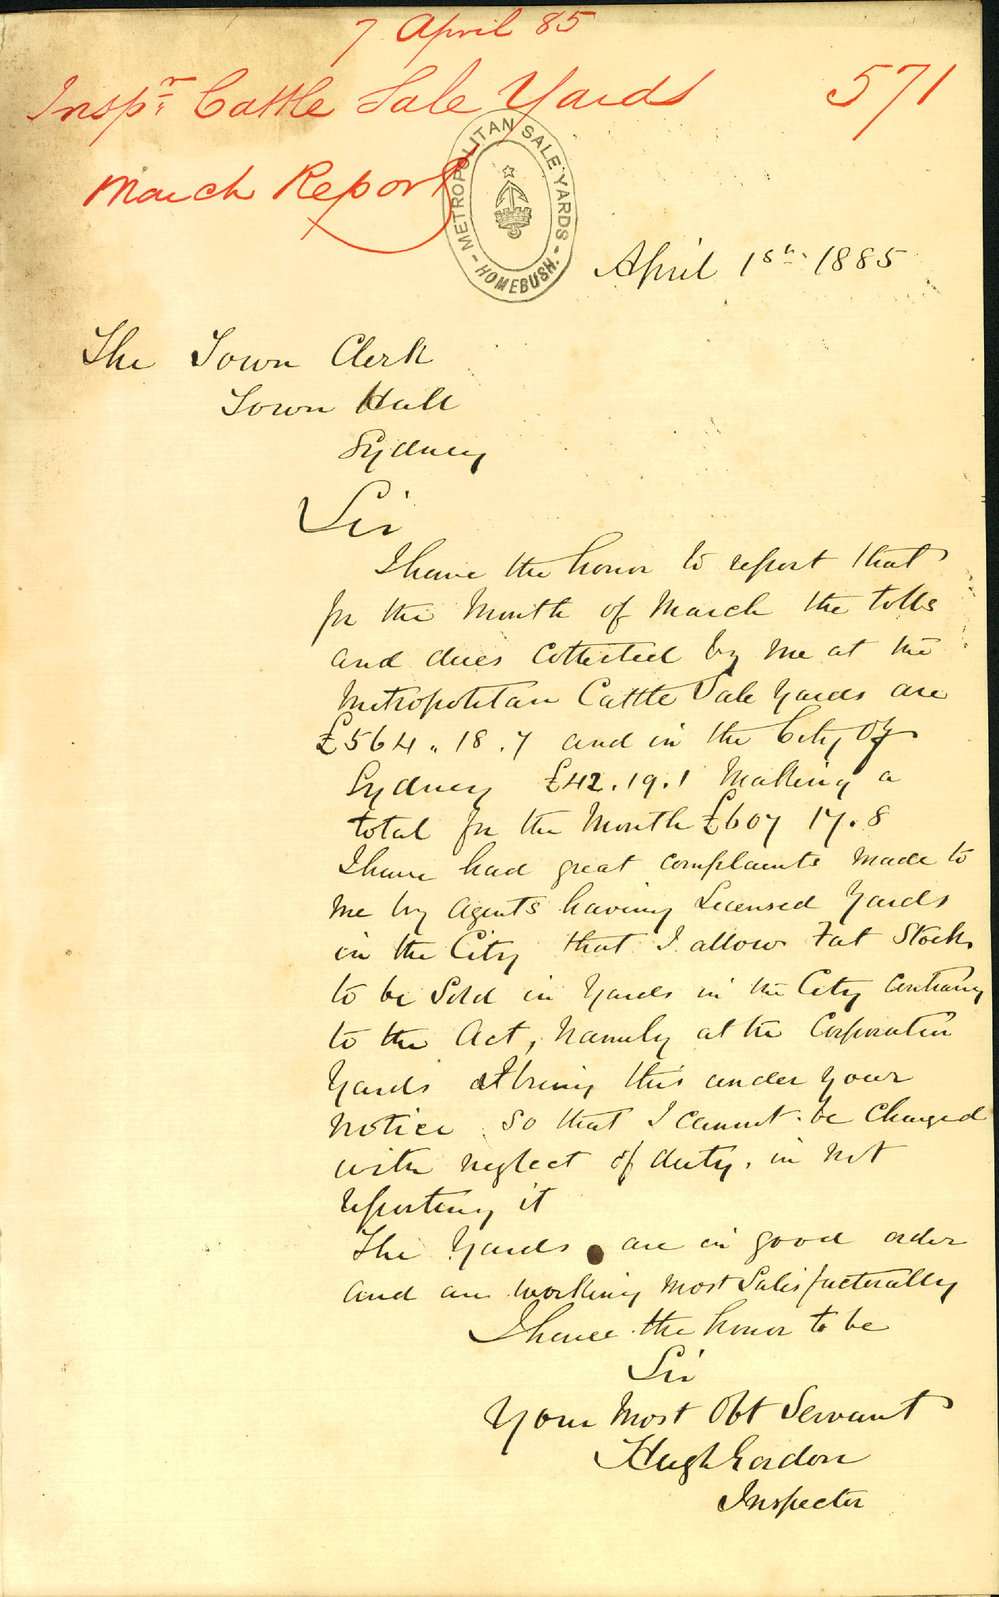 7 April 85
Inspr. Cattle Sale Yards 571
March Report
METROPOLITAN SALE YARDS
- HOMEBUSH. -
April 1st. 1885
The Town Clerk
Town Hall
Sydney
Sir
I have the honor to report that
for the Month of March the tolls
and dues Collected by me at the
Metropolitan Cattle Sale Yards are
£564.18.7 and in the City of
Sydney £42.19.1 Making a
total for the Month £607 17.8
I have had great complaints made to
me by Agents having Licensed Yards
in the City that I allow Fat Stock
to be Sold in Yards in the City Contrary
to the Act, Namely at the Corporation
Yards I bring this under your
Notice so that I cannot be Charged
with neglect of duty, in not
reporting it
The Yards are in good order
and are working most Satisfactorally
I have the honor to be
Sir
Your Most Obt Servant
Hugh Gordon
Inspector